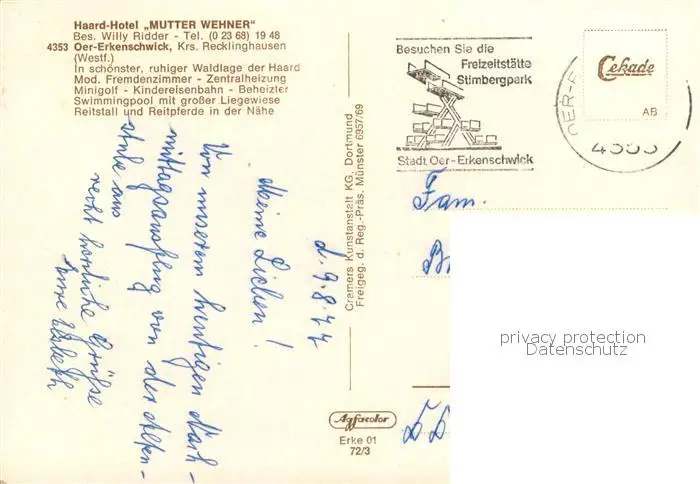 Haard-Hotel „MUTTER WEHNER"
Bes. Willy Ridder - Tel. (0 23 68) 19 48
4353 Oer-Erkenschwick, Krs. Recklinghausen
(Westf.)
In schönster, ruhiger Waldlage der Haard
Mod. Fremdenzimmer - Zentralheizung
Minigolf - Kindereisenbahn - Beheizter
Swimmingpool mit großer Liegewiese
Reitstall und Reitpferde in der Nähe
d. 9.8.77
Meine Lieben!
Von unserem heutigen Nach-
mittagsausflug von der Alten-
stube aus
recht herzliche Grüße
Eure
Cramers Kunstanstalt KG, Dortmund
Freigeg. d. Reg.-Präs. Münster 6957/69
Agfacolor
Erke 01
72/3
Besuchen Sie die
Freizeitstätte
Stimbergpark
Stadt Oer-Erkenschwick
OER-E
4353
Cekade
AB
Fam.
privacy protection
Datenschutz